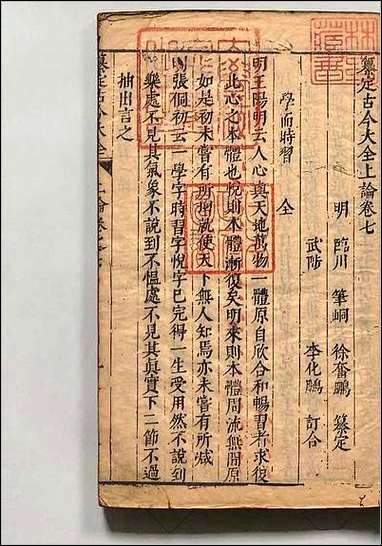 纂定古今大全上論卷七
明 臨川 筆峒 徐奮鵬 纂定
武陟 李化鵬 訂合
學而時習 全
明王陽明云人心與天地萬物一體原自欣合和暢習者求復
此心之本體也悅則本體漸復矣朋來則本體周流無間原
如是初未嘗有所增就使天下無人知焉亦未嘗有所減
張侗初云一學字時習字悅字已完得一生受用然不說到
樂處不見其氣象不說到不慍處不見其真實下二節不過
抽出言之
纂定古今大全 上論卷之七